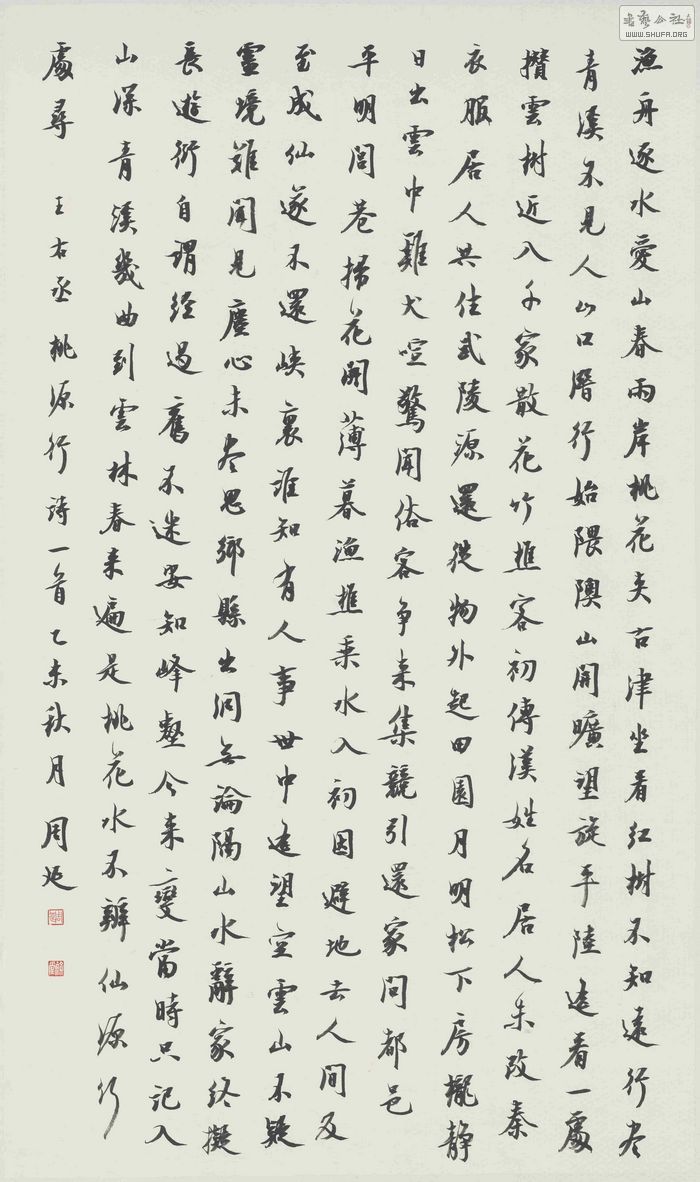 漁舟逐水愛山春兩岸桃花夾古津坐看紅樹不知遠行尽
青溪不見人山口潛行始隈隩山開曠望旋平陸遠看一處
攢雲樹近入千家散花竹樵客初傳漢姓名居人未改秦
衣服居人共住武陵源還從物外起田園月明松下房櫳靜
日出雲中雞犬喧驚聞俗客爭来集競引還家問都邑
平明閭巷掃花開薄暮漁樵乘水入初因避地去人間及
至成仙遂不還峽裏誰知有人事世中遙望空雲山不疑
靈境難聞見塵心未尽思鄉縣出洞無論隔山水辭家終擬
長遊衍自謂經過舊不迷安知峰壑今来變當時只記入
山深青溪幾曲到雲林春来遍是桃花水不辨仙源何
處尋 王右丞桃源行詩一首乙未秋月周延
書藝公社
WWW.SHUFA.ORG